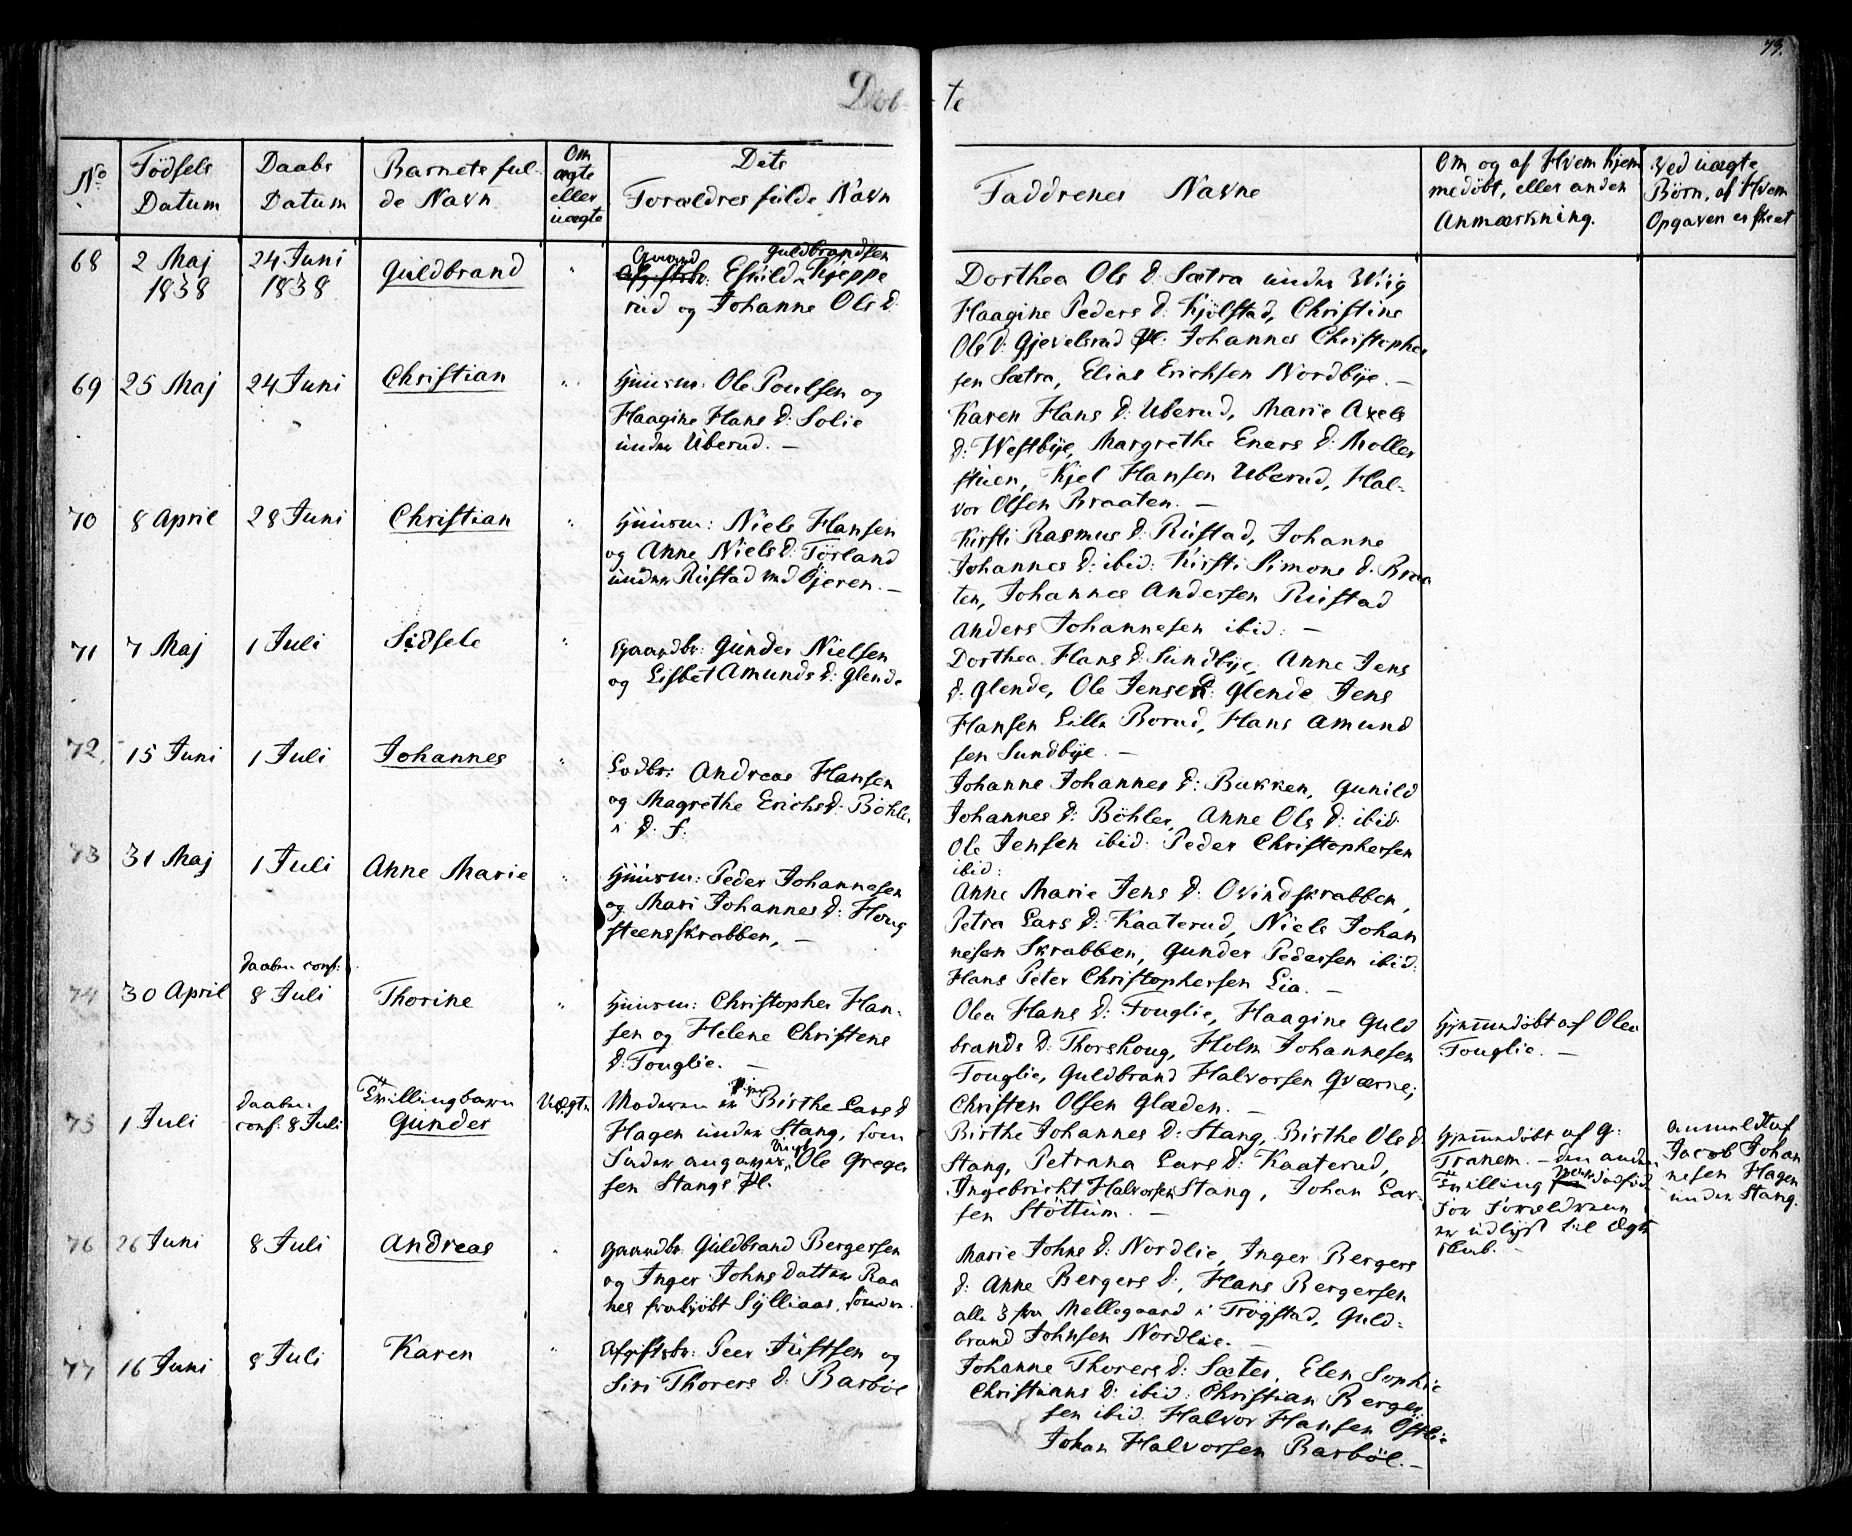 73.
Döb- te
No
Födsels
Datum
Daabs
Datum
Barnets ful-
de Navn
Om
ægte
eller
uægte
Dets
Forældres fulde Navn
Faddrenes Navne
Om og af Hvem hjem
medöbt, eller anden
Anmærkning.
Ved uægte
Börn, af Hvem
Opgaven er skeet
68
2 Maj
1838
24 Juni
1838
Guldbrand
"
Gaard Guldbrandsen
Eskild Kjeppe
rud og Johanne Ols d:
Dorthea Ols d: Sætra under Wiig
Haagine Peders d: Kjölstad, Christine
Ols d: Gjevelsrud Pl: Johannes Christopher
sen Sætra, Elias Erichsen Nordbye. —
69
25 Maj
24 Juni
Christian
"
Huusm: Ole Poulsen og
Haagine Hans d: Solie
under Uberud. —
Karen Hans d: Uberud, Marie Axels
d: Westbye, Margrethe Eners d: Moller
stuen, Kjel Hansen Uberud, Hal-
vor Olsen Braaten. —
70
8 April
28 Juni
Christian
"
Huusm: Niels Hansen
og Anne Niels d: Törland
under Rustad ved Öjeren. —
Kirsti Rasmus d: Rustad, Johanne
Johannes d: ibid: Kirsti Simons d. Braa
ten, Johannes Andersen Rustad
Anders Johannesen ibid: —
71
7 Maj
1 Juli
Sidsele
"
Gaardbr: Gunder Nielsen
og Lisbet Amunds d: Glende
Dorthea Hans d: Sundbye, Anne Jens
d: Glende, Ole Jensen Glende Jens
Hansen Lille Borud, Hans Amund
sen Sundbye. —
72.
15 Juni
1 Juli
Johannes
"
Lodbr: Andreas Hansen
og Magrethe Erichs d: Böhler
i d: f:
Johanne Johannes d: Bakken, Gunild
Johannes d: Böhler, Anne Ols d: ibid:
Ole Jensen ibid: Peder Christophersen
ibid:
73
31 Maj
1 Juli
Anne Marie
"
Huusm: Peder Johannesen
og Mari Johannes d: Houg
steensskrabben, —
Anne Marie Jens d: Ovindskrabben,
Petra Lars d: Kaaterud, Niels Johan
nesen Skrabben, Gunder Pedersen ibid:
Hans Peter Christophersen Lia. —
74
30 April
daaben conf:
8 Juli
Thorine
"
Huusm: Christopher Han-
sen og Helene Christens
d: Fouglie. —
Olea Hans d: Fouglie, Haagine Guld
brands d: Thorshoug, Holm Johannesen
Fouglie, Guldbrand Halvorsen Qværne,
Christen Olsen Gladen. —
Hjemmedöbt af Olea
Fouglie. —
75
1 Juli
daaben
conf. 8 Juli
Tvillingbarn
Gunder
Uægte
Moderen er Pige Birthe Lars d
Hagen under Stang, som
Fader angaves Ungk. Ole Greger
sen Stangs Pl.
Birthe Johannes d: Stang, Birthe Ols d
Stang, Petrana Lars d: Kaaterud,
Ingebricht Halvorsen Stang, Johan Lar-
sen Stöttum. —
Hjemmedöbt af G:
Tranem. — den anden
Tvilling dödföd
For Forældrene
er udlyst til Ægte
skab. —
anmeldt af
Jacob Johan
nesen Hagen
under Stang.
76
26 Juni
8 Juli
Andreas
"
Gaardbr: Guldbrand Bergersen
og Inger Johns datter Raa
nes Sylliaas, söndre.
Marie Johns d: Nordlie, Inger Bergers
d: Anne Bergers d:, Hans Bergersen
alle 3 fra Mellegaard i Trögstad, Guld-
brand Johnsen Nordlie. —
77
16 Juni
8 Juli
Karen
"
Afgiftsbr: Peer Justsen og
Siri Thorers d: Barböl
Johanne Thorers d: Sæter, Elen Sophie
Christians d: ibid: Christian Berger
sen ibid. Halvor Hansen Östlie
Johan Halvorsen Barböl. —